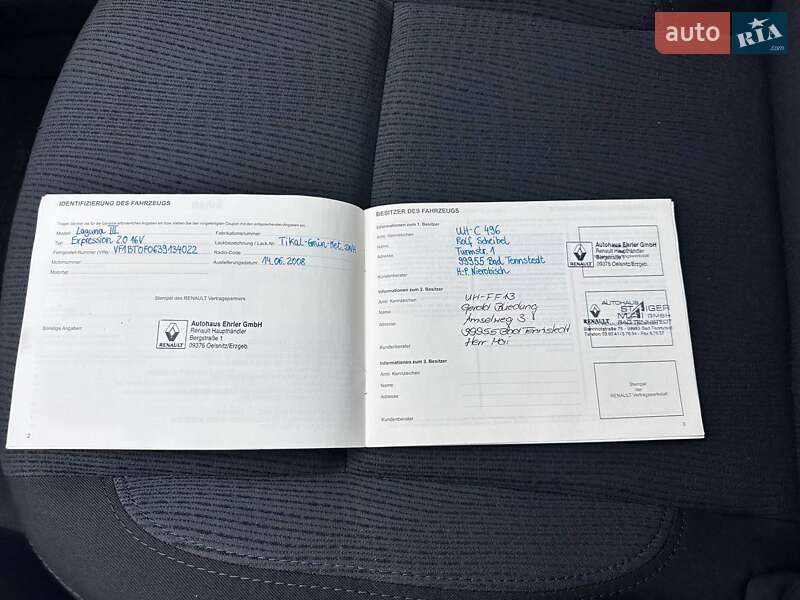 auto RIA.com
IDENTIFIZIERUNG DES FAHRZEUGS
Modell Laguna III Fabrikationsnummer
Typ Expression 2.0 16V Lackbezeichnung / Lack-Nr. Tikal-Grün-Met.
Fahrgestell-Nummer (VIN) VF1BT0F0639134022 Radio-Code
Motornummer Auslieferungsdatum 14.06.2008
Motortyp
Stempel des RENAULT Vertragspartners
Sonstige Angaben
RENAULT
Autohaus Ehrler GmbH
Renault Haupthändler
Bergstraße 1
09376 Oelsnitz/Erzgeb.
2
BESITZER DES FAHRZEUGS
Informationen zum 1. Besitzer
Amtl. Kennzeichen UH-C 496
Name Rolf Scheibel
Adresse Turmstr. 1
99955 Bad Tennstedt
Kundenberater H.P. Nierobisch
RENAULT
Autohaus Ehrler GmbH
Renault Haupthändler
Bergstraße 1
09376 Oelsnitz/Erzgeb.
Informationen zum 2. Besitzer
Amtl. Kennzeichen UH-FF 13
Name Gerold
Adresse Amselweg 3
99955 Bad Tennstedt
Kundenberater Herr Mai
RENAULT
AUTOHAUS
STAIGER
MAI GmbH
BAD TENNSTEDT
Informationen zum 3. Besitzer
Amtl. Kennzeichen
Name
Adresse
Kundenberater
Stempel
des
RENAULT Vertragswerkstatt
3